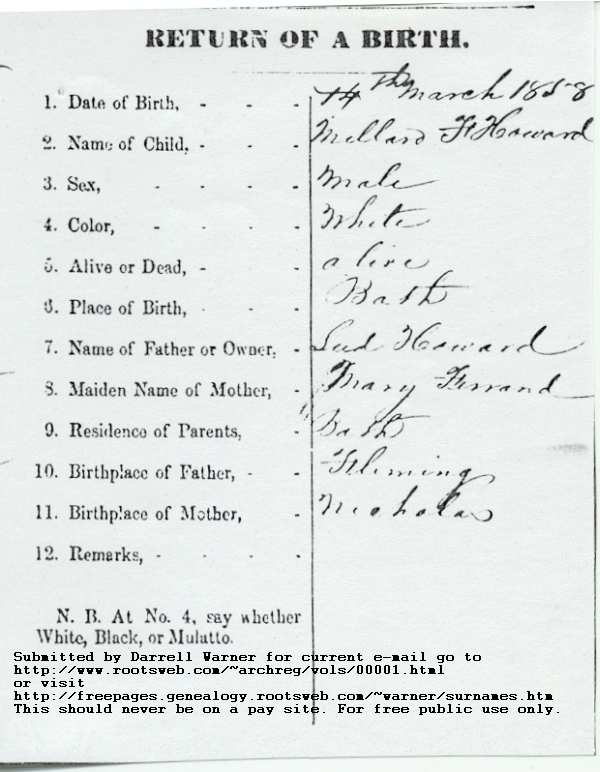 RETURN OF A BIRTH.
1. Date of Birth, - - - 14th March 1858
2. Name of Child, - - - Millard F Howard
3. Sex, - - - - Male
4. Color, - - - - White
5. Alive or Dead, - - alive
6. Place of Birth, - - Bath
7. Name of Father or Owner, - Howard
8. Maiden Name of Mother, - Mary Ferrand
9. Residence of Parents, - Bath
10. Birthplace of Father, - - Fleming
11. Birthplace of Mother, - Nicholas
12. Remarks, - - - -
N. B. At No. 4, say whether
White, Black, or Mulatto.
Submitted by Darrell Warner for current e-mail go to
http://www.rootsweb.com/~archreg/vols/00001.html
or visit
http://freepages.genealogy.rootsweb.com/~warner/surnames.htm
This should never be on a pay site. For free public use only.